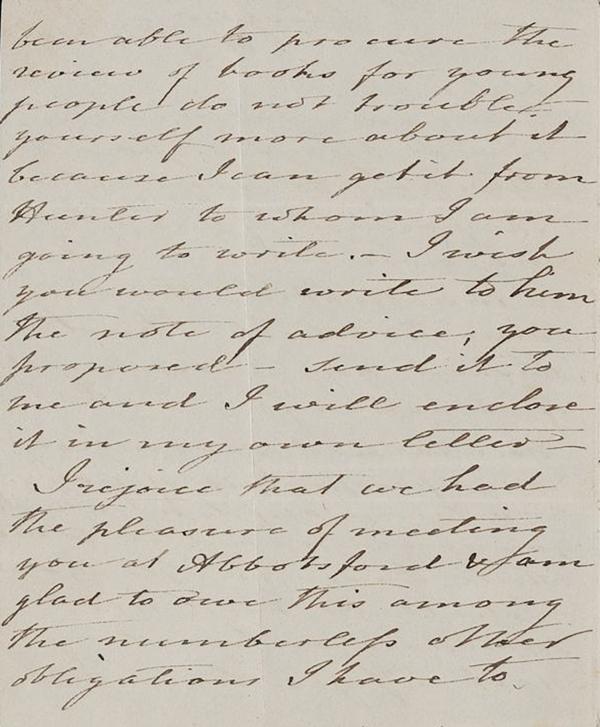 been able to procure the
review of books for young
people do not trouble
yourself more about it
because I can get it from
Hunter to whom I am
going to write. – I wish
you would write to him
the note of advice, you
proposed – send it to
me and I will enclose
it in my own letter –
I rejoice that we had
the pleasure of meeting
you at Abbotsford & am
glad to owe this among
the numberless other
obligations I have to